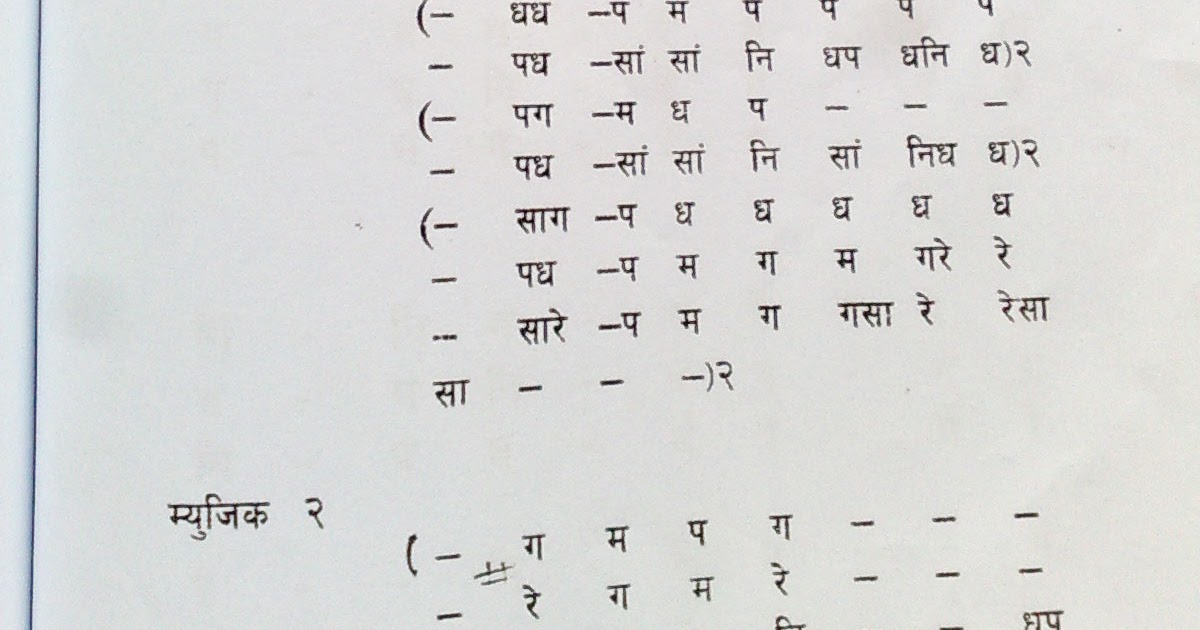 (– धध –प म प प प प
– पध –सां सां नि धप धनि ध)२
(– पग –म ध प – – –
– पध –सां सां नि सां निध ध)२
(– साग –प ध ध ध ध ध
– पध –प म ग म गरे रे
-- सारे –प म ग गसा रे रेसा
सा – – –)२
म्युजिक २
(– ग म प ग – – –
– रे ग म रे – – –
नि – धप